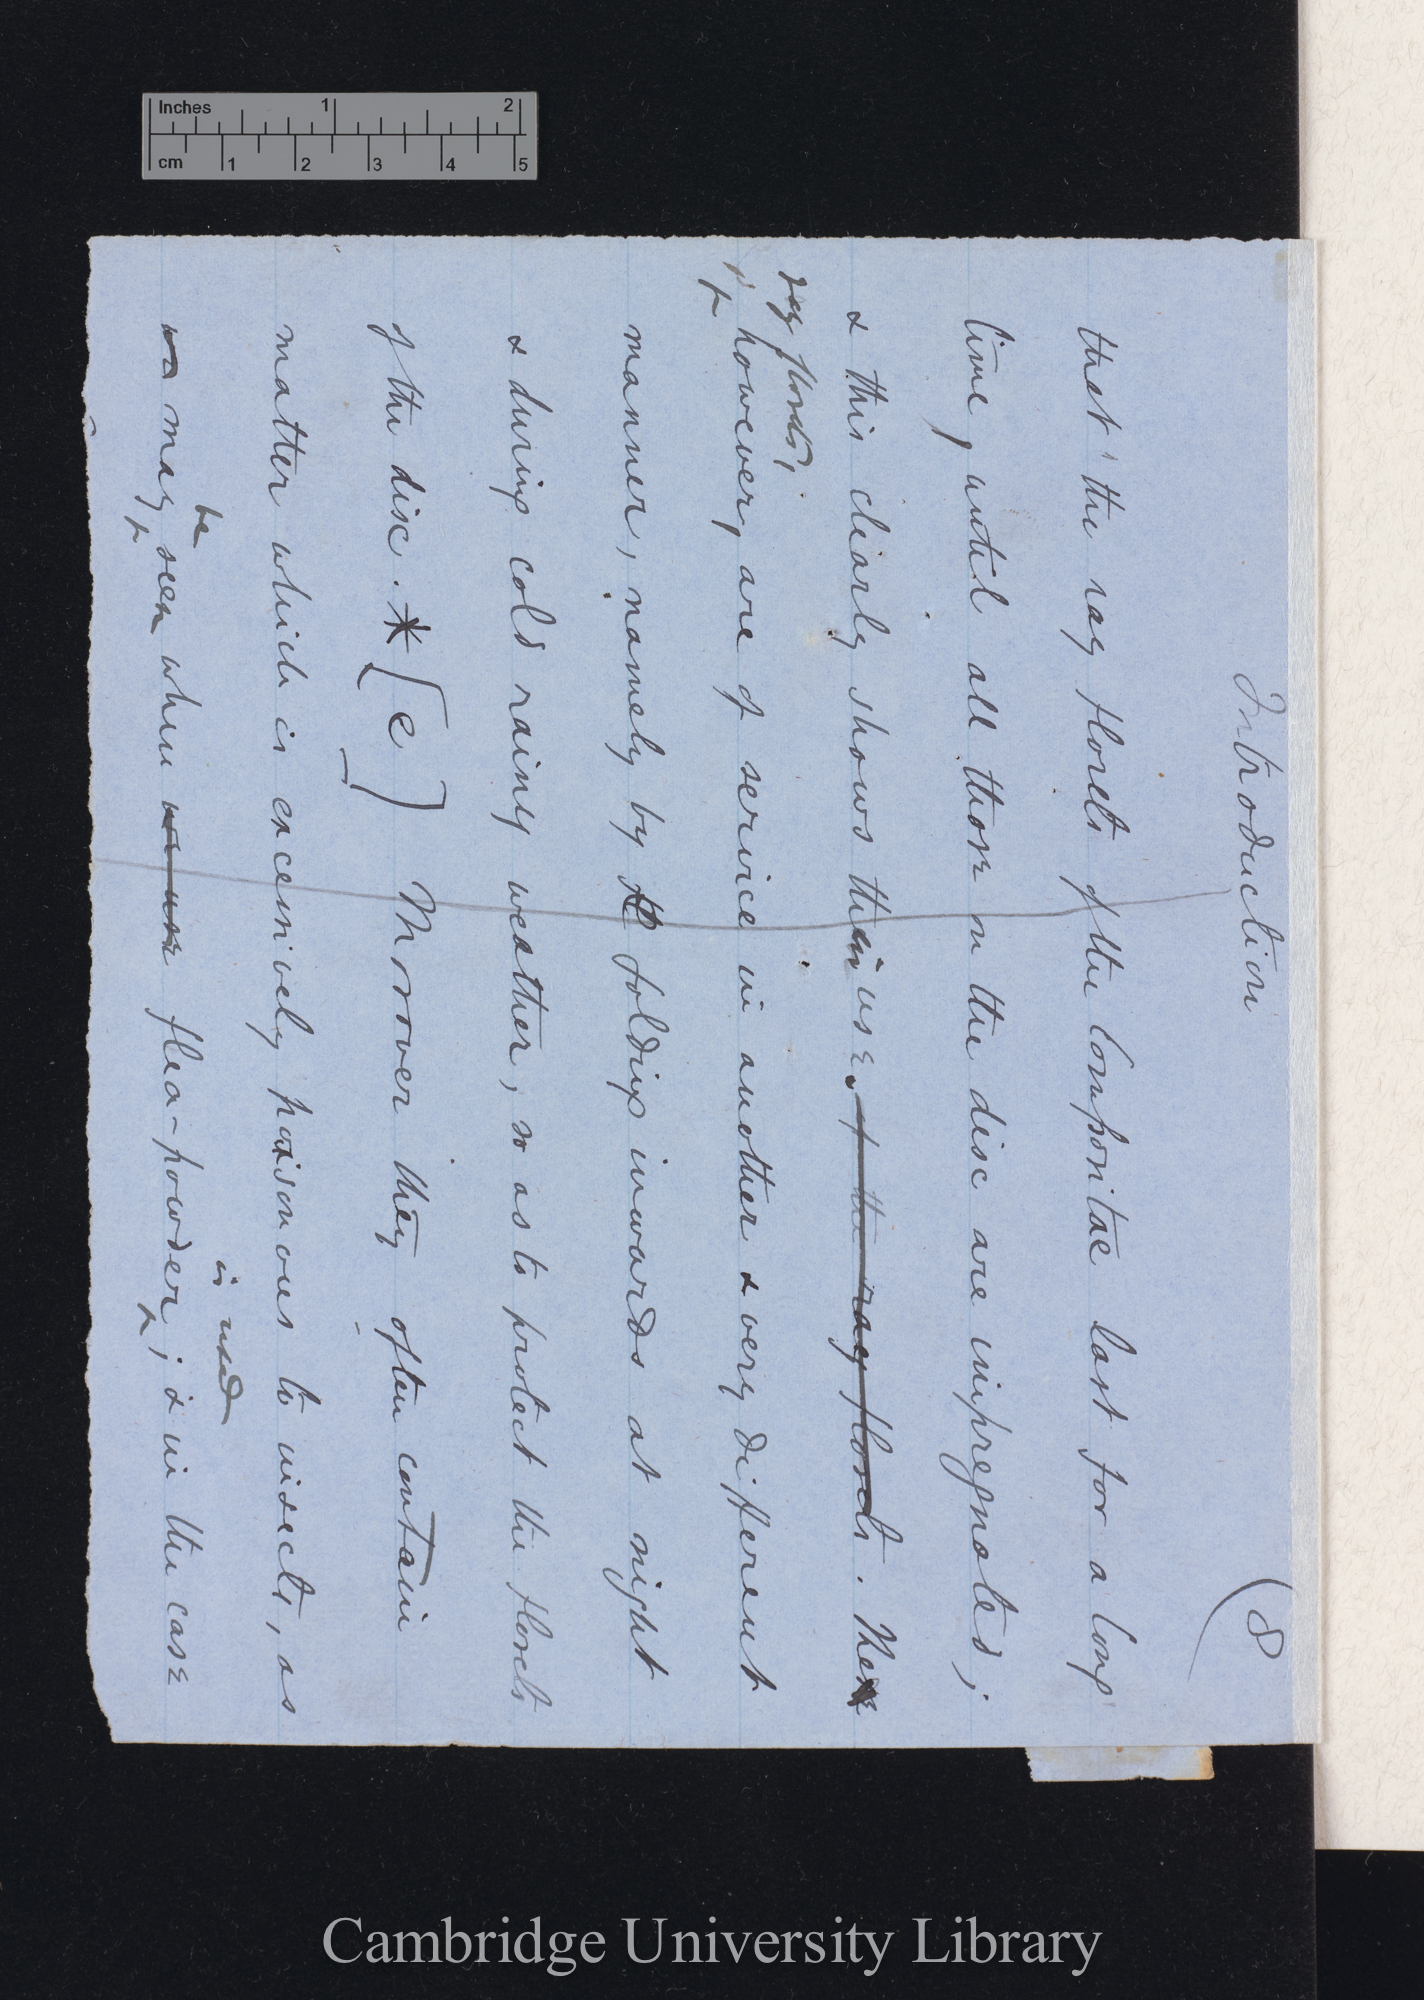 Inches 1 2
cm 1 2 3 4 5
Introduction
(8
that the ray florets of the Compositae last for a long
time, until all those on the disc are impregnated;
& this clearly shows their use. of the ray florets. The
ray florets,
however, are of service in another & very different
manner, namely by folding inwards at night
& during cold rainy weather, so as to protect the florets
of the disc. * [e] Moreover they often contain
matter which is excessively poisonous to insects, as
be
may seen when flea-powder; & in the case
is used
Cambridge University Library